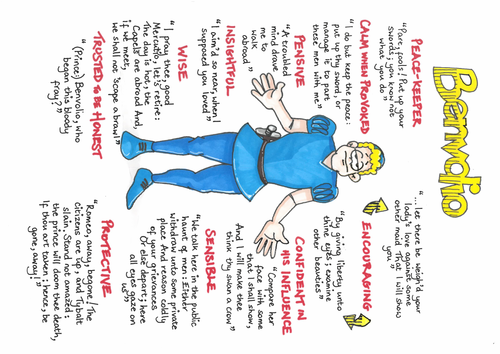 Benvolio
PEACE-KEEPER
"Part, fools! Put up your
swords; you know not
what you do"
CALM WHEN PROVOKED
"I do but keep the peace:
put up thy sword, or
manage it to part
these men with me"
PENSIVE
"A troubled
mind drave
me to
walk
abroad"
INSIGHTFUL
"I aim'd so near, when I
supposed you loved"
WISE
"I pray thee, good
Mercutio, let's retire:
The day is hot, the
Capels are abroad And,
if we meet,
we shall not 'scape a brawl"
TRUSTED TO BE HONEST
"(Prince) Benvolio, who
began this bloody
fray?"
"...let there be weigh'd your
lady's love against some
other maid That I will show
you
ENCOURAGING
"By giving liberty unto
thine eyes; examine
other beauties"
CONFIDENT IN
HIS INFLUENCE
"Compare her
face with some
that I shall show,
And I will make thee
think thy swan a crow"
SENSIBLE
"We talk here in the public
haunt of men: Either
withdraw unto some private
place And reason coldly
of your grievances
Or else depart; here
all eyes gaze on
us"
PROTECTIVE
"Romeo, away, begone! The
citizens are up, and Tybalt
slain, Stand not amazed:
the prince will doom thee death,
If thou art taken: hence, be
gone, away!"